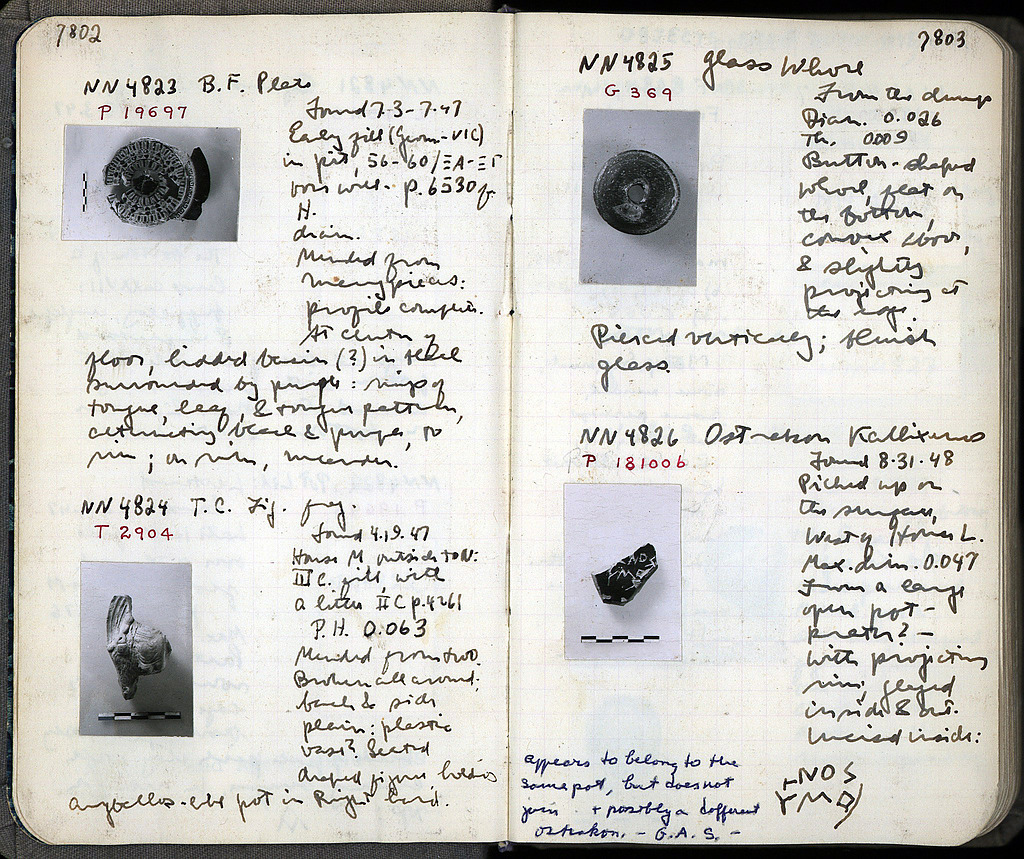 7802
NN 4823 B.F. Plate
P 19697
Found 7-3-7-47
Early fill (Geom-VIC)
in pit, 56-60/ΞΑ-ΞΓ
p. 6530ff.
H.
drain.
Mended from
many pieces:
profile complete.
At center of
floor, lidded basin (?) in black
surrounded by purple: rings of
tongue, leaf, & tongue pattern,
alternating black & purple, to
rim; on rim, meander.
NN 4824 T.C. Fig. frag
T 2904
Found 4.19.47
House M, outside to W:
III C. fill with
a little II C p. 4261
P.H. 0.063
Mended from two.
Broken all around;
back & side
plain: plastic
vase? Seated
draped figure holding
aryballos-like pot in Right hand.
7803
NN 4825 Glass Whorl
G 369
From the dump
Diam. 0.026
Th. 0.009
Button-shaped
whorl, flat on
the bottom,
convex above,
& slightly
projecting at
the edge.
Pierced vertically; bluish
glass.
NN 4826 Ostrakon Kallixenos
P 181006
Found 8.31.48
Picked up on
the surface,
West of House L.
Max. dim. 0.047
From a large
open pot –
krater? –
with projecting
rim; glazed
inside & out.
Incised inside:
ΝΟS
appears to belong to the
same pot, but does not
join + possibly a different
ostrakon. – G.A.S. –